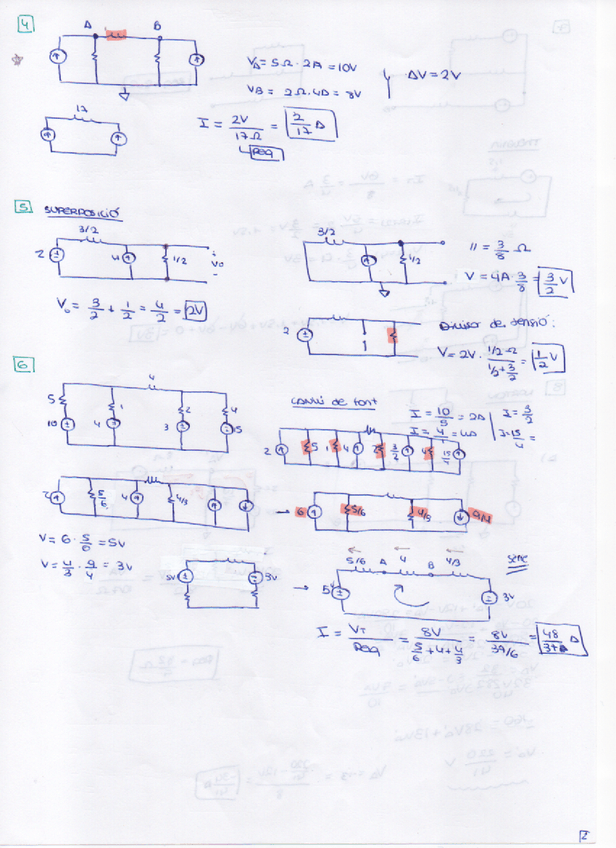 4
A B
VA = 5Ω · 2A = 10V
VB = 2Ω · 4A = 8V
ΔV = 2V
17
I = 2V / 17Ω = 2/17 A
REQ
5 SUPERPOSICIÓ
3/2
2 4 1/2 + Vo -
Vo = 3/2 + 1/2 = 4/2 = 2V
3/2
1/2
// = 3/8 Ω
V = 4A · 3/8 = 3/2 V
2
Divisor de tensió:
V = 2V · 1/2 Ω / 1/2 + 3/2 = 1/2 V
6
4
5 1 2 4
10 4 3 15
CANVI DE FONT
I = 10/5 = 2A
I = 4/1 = 4A
I = 3/2
I = 15/4 =
2 5 1 4 2 3/2 4 15/4
2 5/6 4 4/3
6 5/6 4/3 9/4
V = 6 · 5/6 = 5V
V = 4/3 · 9/4 = 3V
5V 3V
5/6 A 4 B 4/3
5V 3V
I = VT / REQ = 8V / 5/6 + 4 + 4/3 = 8V / 37/6 = 48/37 A
2